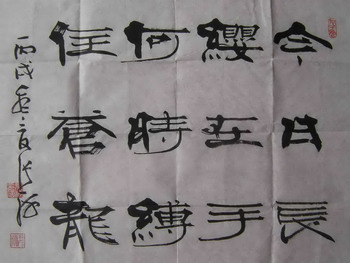 今日長
纓在手
何時縛
住蒼龍
丙戌